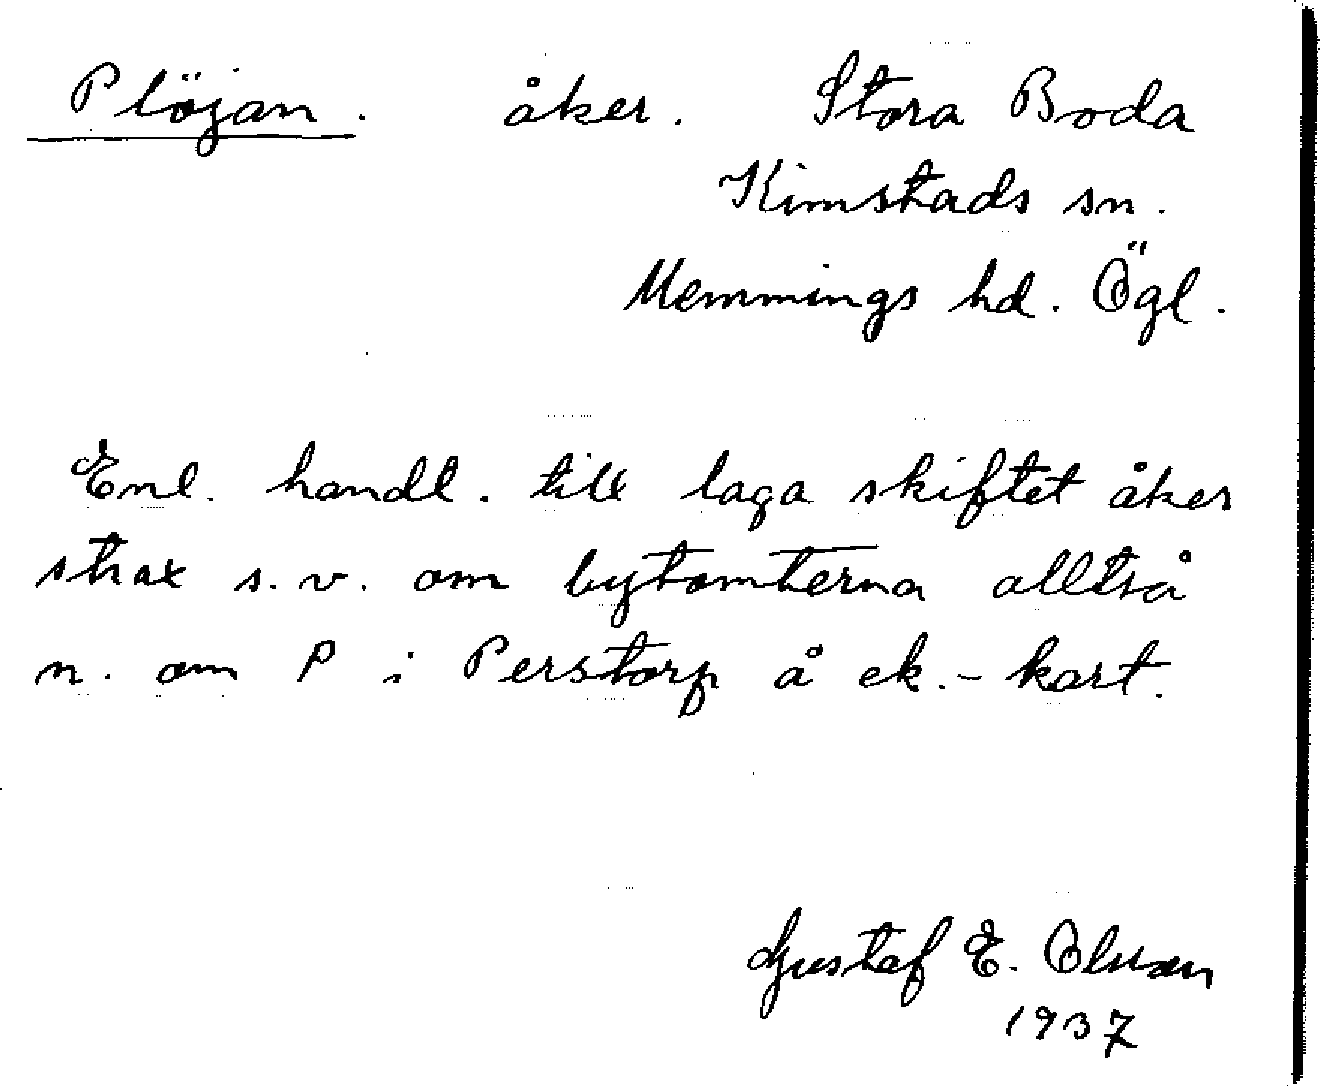 Plöjan. åker. Stora Boda
Kimstads sn.
Memmings hd. Ögl.
Enl. handl. till laga skiftet åker
strax s.v. om bytomterna alltså
n. om P i Perstorp å ek.-kart.
Gustaf E. Olsson
1937